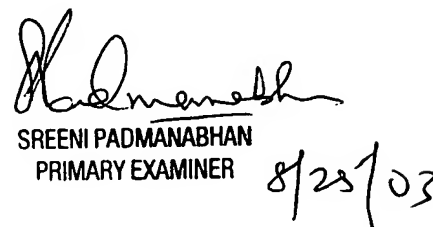 Padmanabhan
SREENI PADMANABHAN
PRIMARY EXAMINER
8/25/03